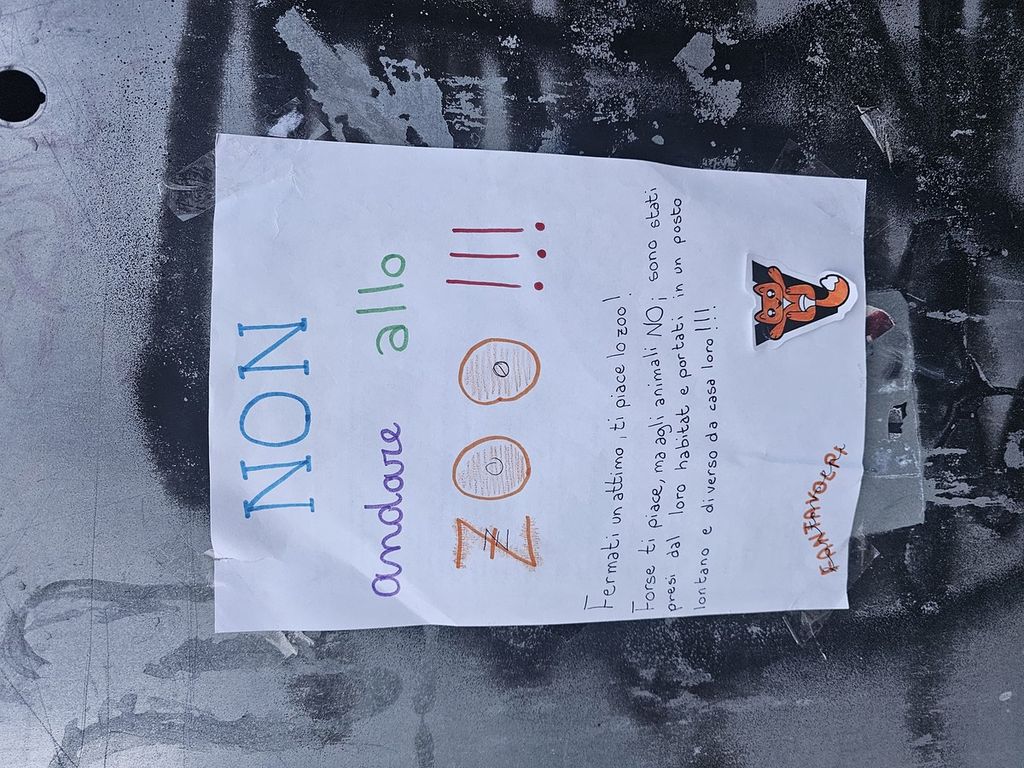 NON
andare allo
ZOO !!!
Fermati un attimo, ti piace lo zoo!
Forse ti piace, ma agli animali NO; sono stati
presi dal loro habitat e portati in un posto
lontano e diverso da casa loro!!!